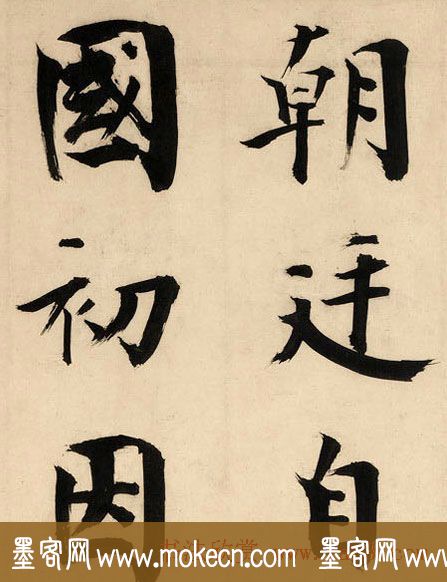 朝廷自
國初因
墨客网 www.mokecn.com 墨客网